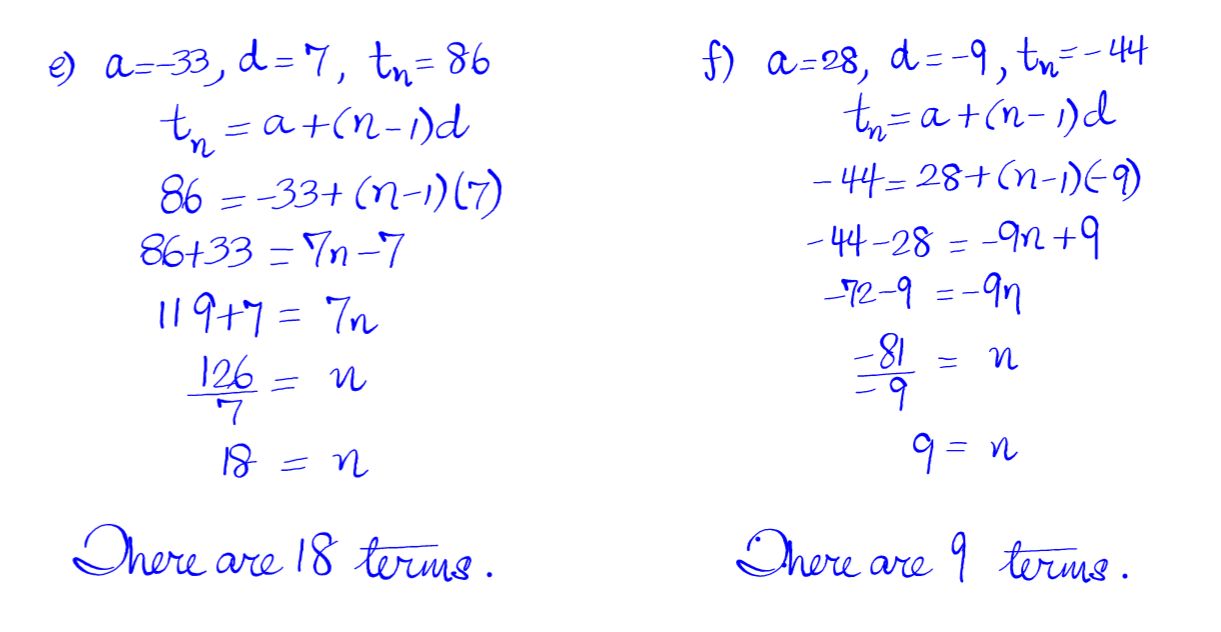 e) a=-33, d=7, tn=86
tn = a+(n-1)d
86 = -33+(n-1)(7)
86+33 = 7n-7
119+7 = 7n
126/7 = n
18 = n
There are 18 terms.
f) a=28, d=-9, tn=-44
tn=a+(n-1)d
-44=28+(n-1)(-9)
-44-28 = -9n+9
-72-9 = -9n
-81/-9 = n
9 = n
There are 9 terms.